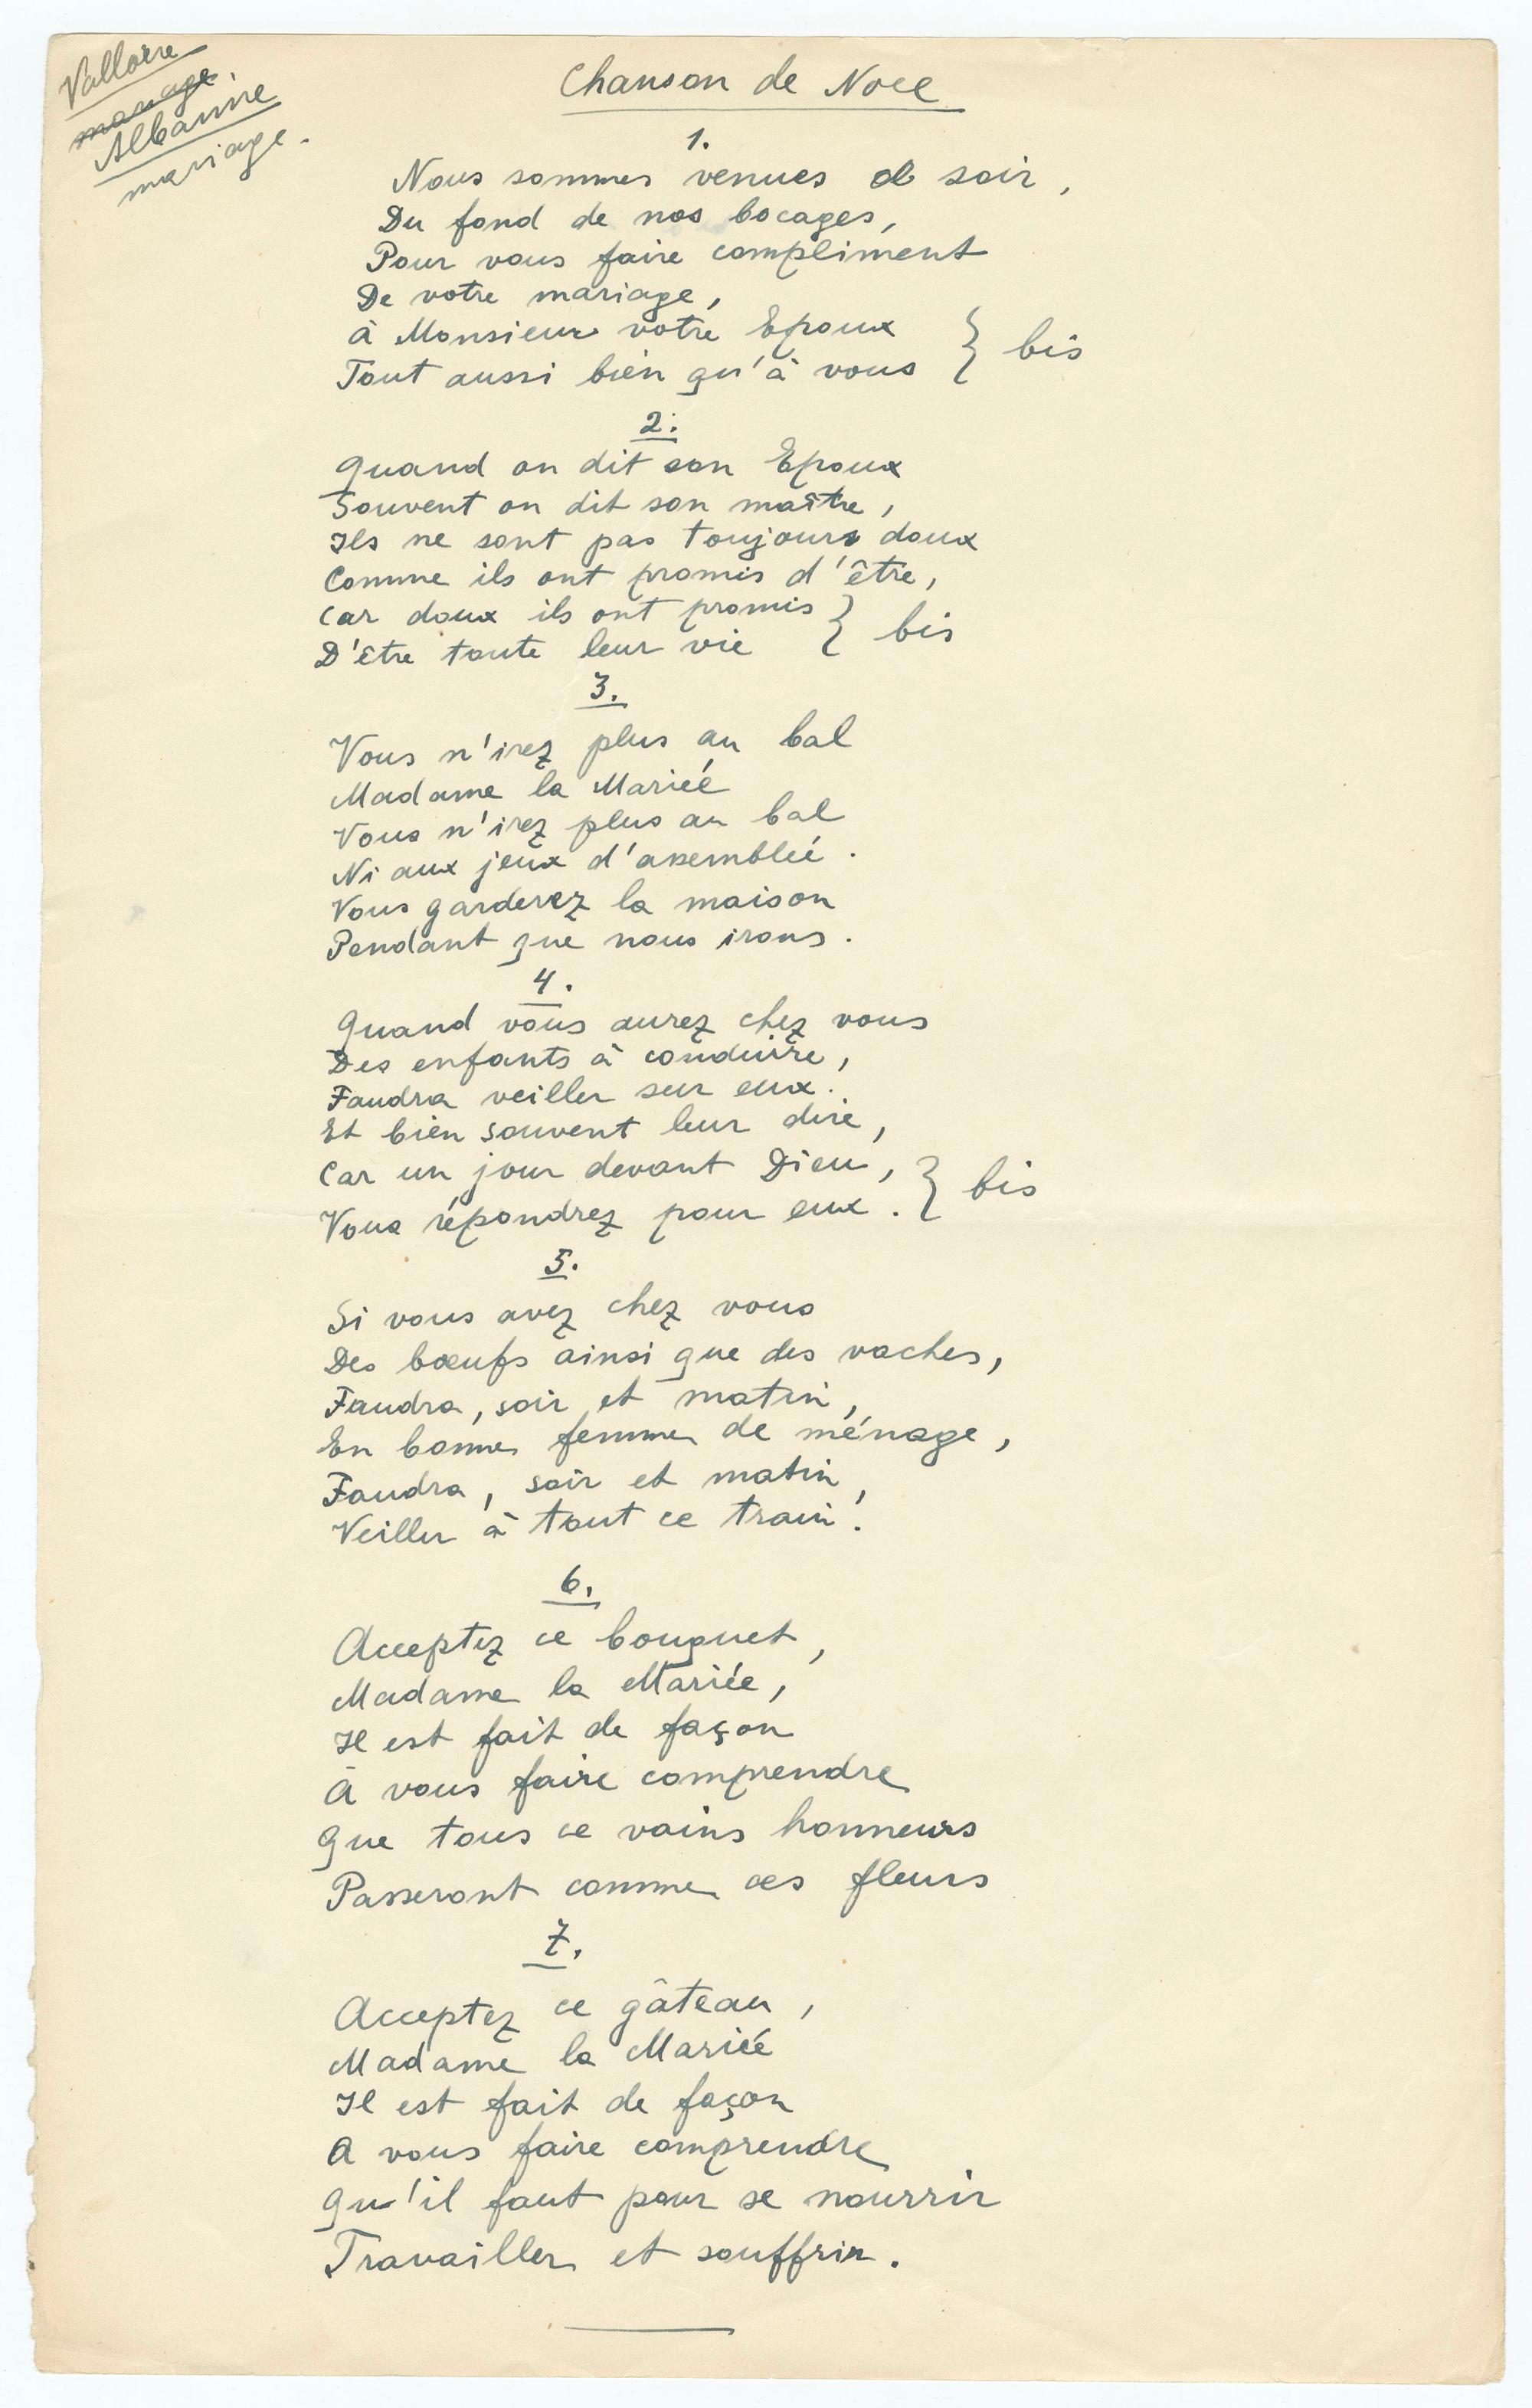 Valloire
mariage.
Albanne
mariage.
Chanson de Noce
1.
Nous sommes venues ce soir,
Du fond de nos bocages,
Pour vous faire compliment
De votre mariage,
à Monsieur votre Epoux
Tout aussi bien qu'à vous } bis
2.
Quand on dit son Epoux
Souvent on dit son maître,
Ils ne sont pas toujours doux
Comme ils ont promis d'être,
Car doux ils ont promis
D'être toute leur vie } bis
3.
Vous n'irez plus au bal
Madame la Mariée
Vous n'irez plus au bal
Ni aux jeux d'assemblée.
Vous garderez la maison
Pendant que nous irons.
4.
Quand vous aurez chez vous
Des enfants à conduire,
Faudra veiller sur eux.
Et bien souvent leur dire,
Car un jour devant Dieu,
Vous répondrez pour eux. } bis
5.
Si vous avez chez vous
Des bœufs ainsi que des vaches,
Faudra, soir et matin,
En bonnes femmes de ménage,
Faudra, soir et matin,
Veiller à tout ce train!
6.
Acceptez ce bouquet,
Madame la Mariée,
Il est fait de façon
à vous faire comprendre
Que tous ce vains honneurs
Passeront comme ces fleurs
7.
Acceptez ce gâteau,
Madame la Mariée
Il est fait de façon
A vous faire comprendre
Qu'il faut pour se nourrir
Travailler et souffrir.